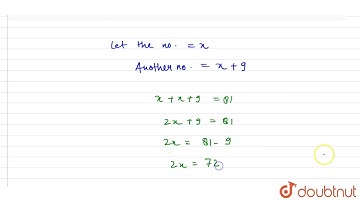 Let the no. = x
Another no. = x + 9
x + x + 9 = 81
2x + 9 = 81
2x = 81 - 9
2x = 72
doubtnut